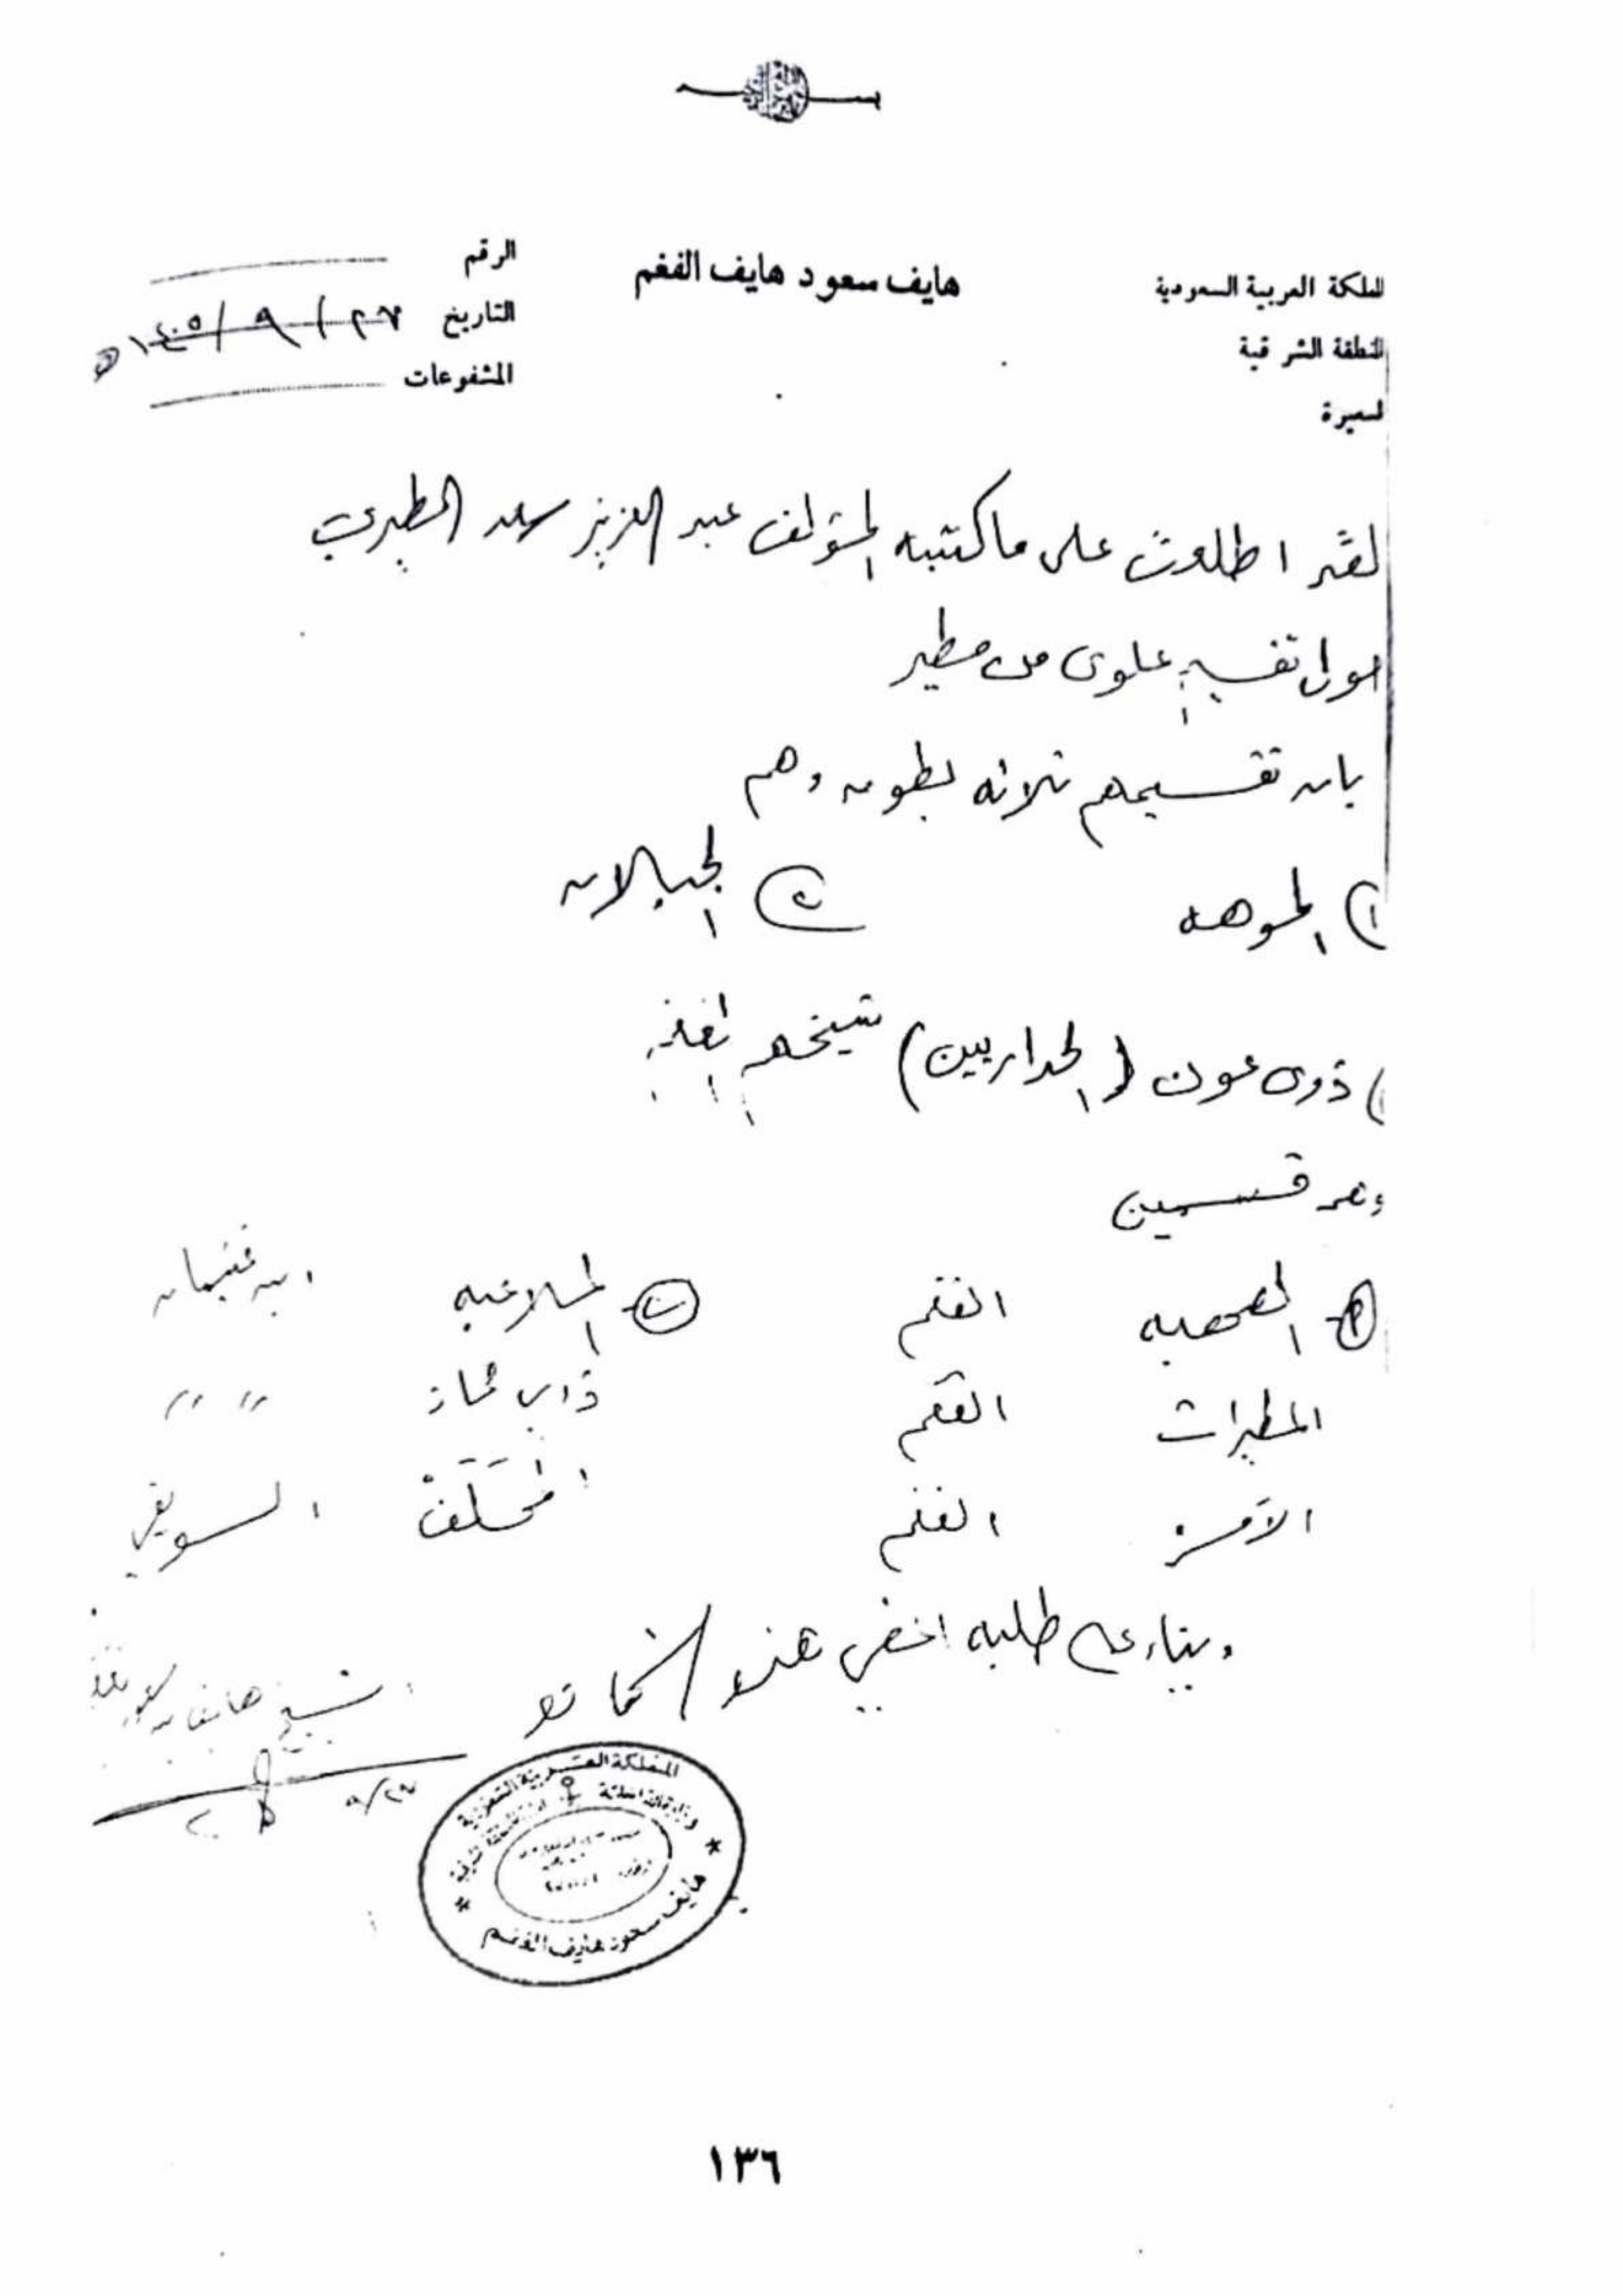 المملكة العربية السعودية
المنطقة الشرقية
لسعيرة
هايف سعود هايف الفغم
الرقم
التاريخ ٢٧ / ٩ / ١٤٠٥ هـ
المشفوعات
لقد اطلعت على ما كتبه المؤلف عبد العزيز سعد المطيري
حول تقسيم علوى من مطير
بان تقسيمهم ثلاثه بطون وهم
١) الموهه ٢) الجبلان
) ذوى عون (الحداريين) شيخهم الفغم
وهم قسمين
أ- الصهبه الفغم ب- الملاعبه ابن غنيمان
المطيرات الفغم ذوي " "
الأمره الفغم المخلف
وبناء على طلبه اعطي هذه
الشيخ هايف بن سعود الفغم
٢٧/٩
المملكة العربية السعودية
هايف سعود هايف الفغم
١٣٦